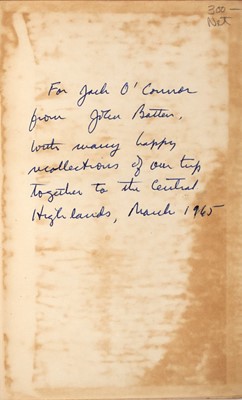 300—
Net
For Jack O'Connor
from John Batten,
with many happy
recollections of our trip
together to the Central
Highlands, March 1965